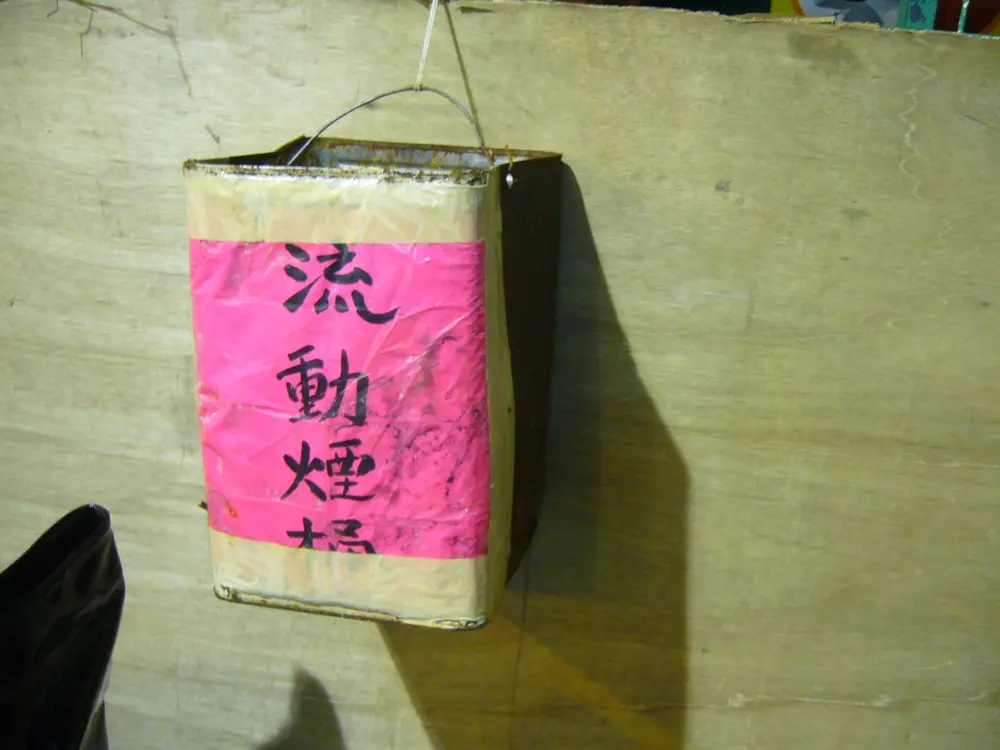 流動煙桶